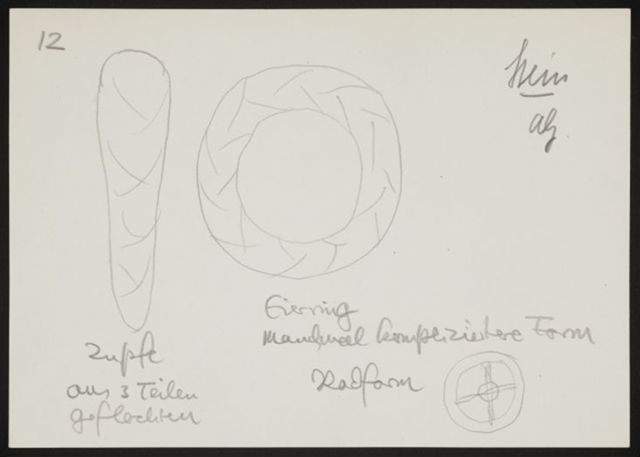 12
Stein
Zupfe
aus 3 Teilen
geflochten
Eierring
manchmal kompliziertere Form
Radform